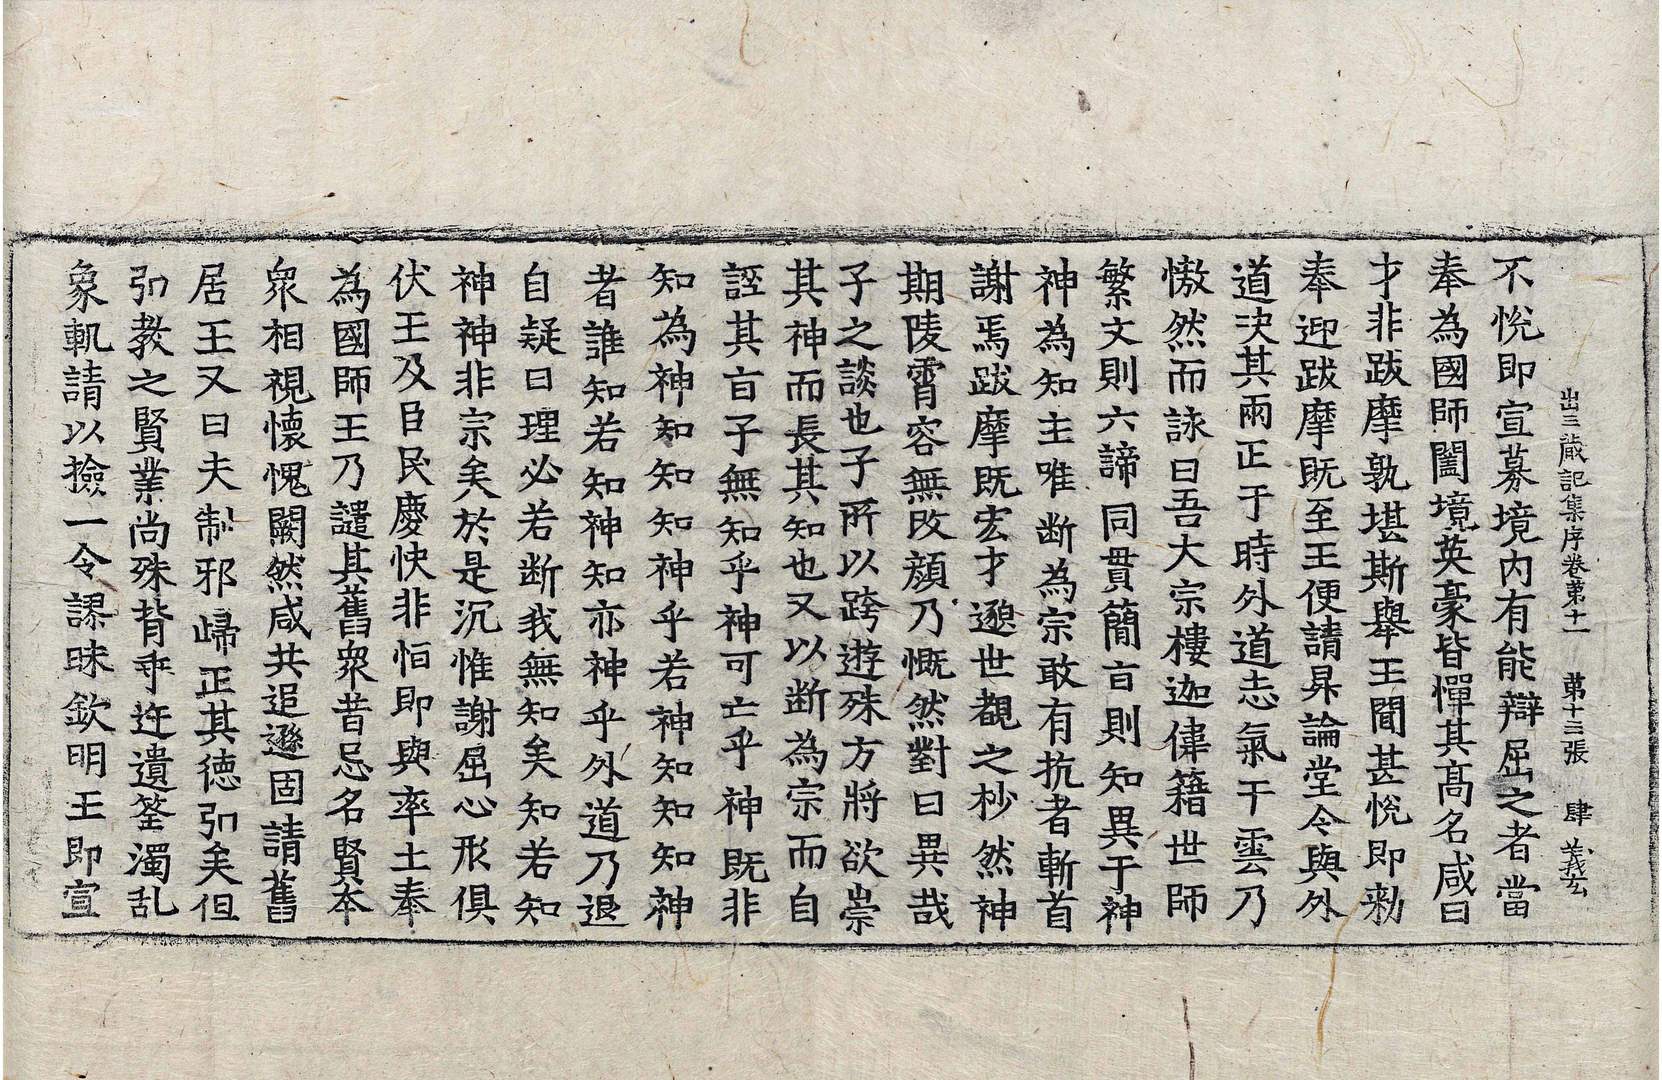 出三蔵記集序卷第十一 第十三張 肆 義玄
不悅即宣募境内有能辯屈之者當
奉為國師闔境英豪皆憚其髙名咸曰
才非跋摩孰堪斯舉王聞甚悅即勑
奉迎跋摩既至王便請昇論堂令與外
道決其兩正于時外道志氣干雲乃
慠然而詠曰吾大宗樓迦偉籍世師
繁文則六諦同貫簡言則知異于神
神為知主唯断為宗敢有抗者斬首
謝焉跋摩既宏才邈世覩之杪然神
期陵霄容無改顔乃慨然對曰異哉
子之談也子所以跨遊殊方將欲崇
其神而長其知也又以断為宗而自
誣其言子無知乎神可亡乎神既非
知為神知知知知神乎若神知知知神
者誰知若知神知亦神乎外道乃退
自疑曰理必若断我無知矣知若知
神神非宗矣於是沉惟謝屈心形俱
伏王及臣民慶快非恒即與率土奉
為國師王乃譴其舊衆昔忌名賢本
衆相視懷愧闕然咸共追遜固請舊
居王又曰夫制邪歸正其徳弘矣但
弘教之賢業尚殊背乖迕遺筌濁乱
象軌請以撿一令謬昧欽明王即宣